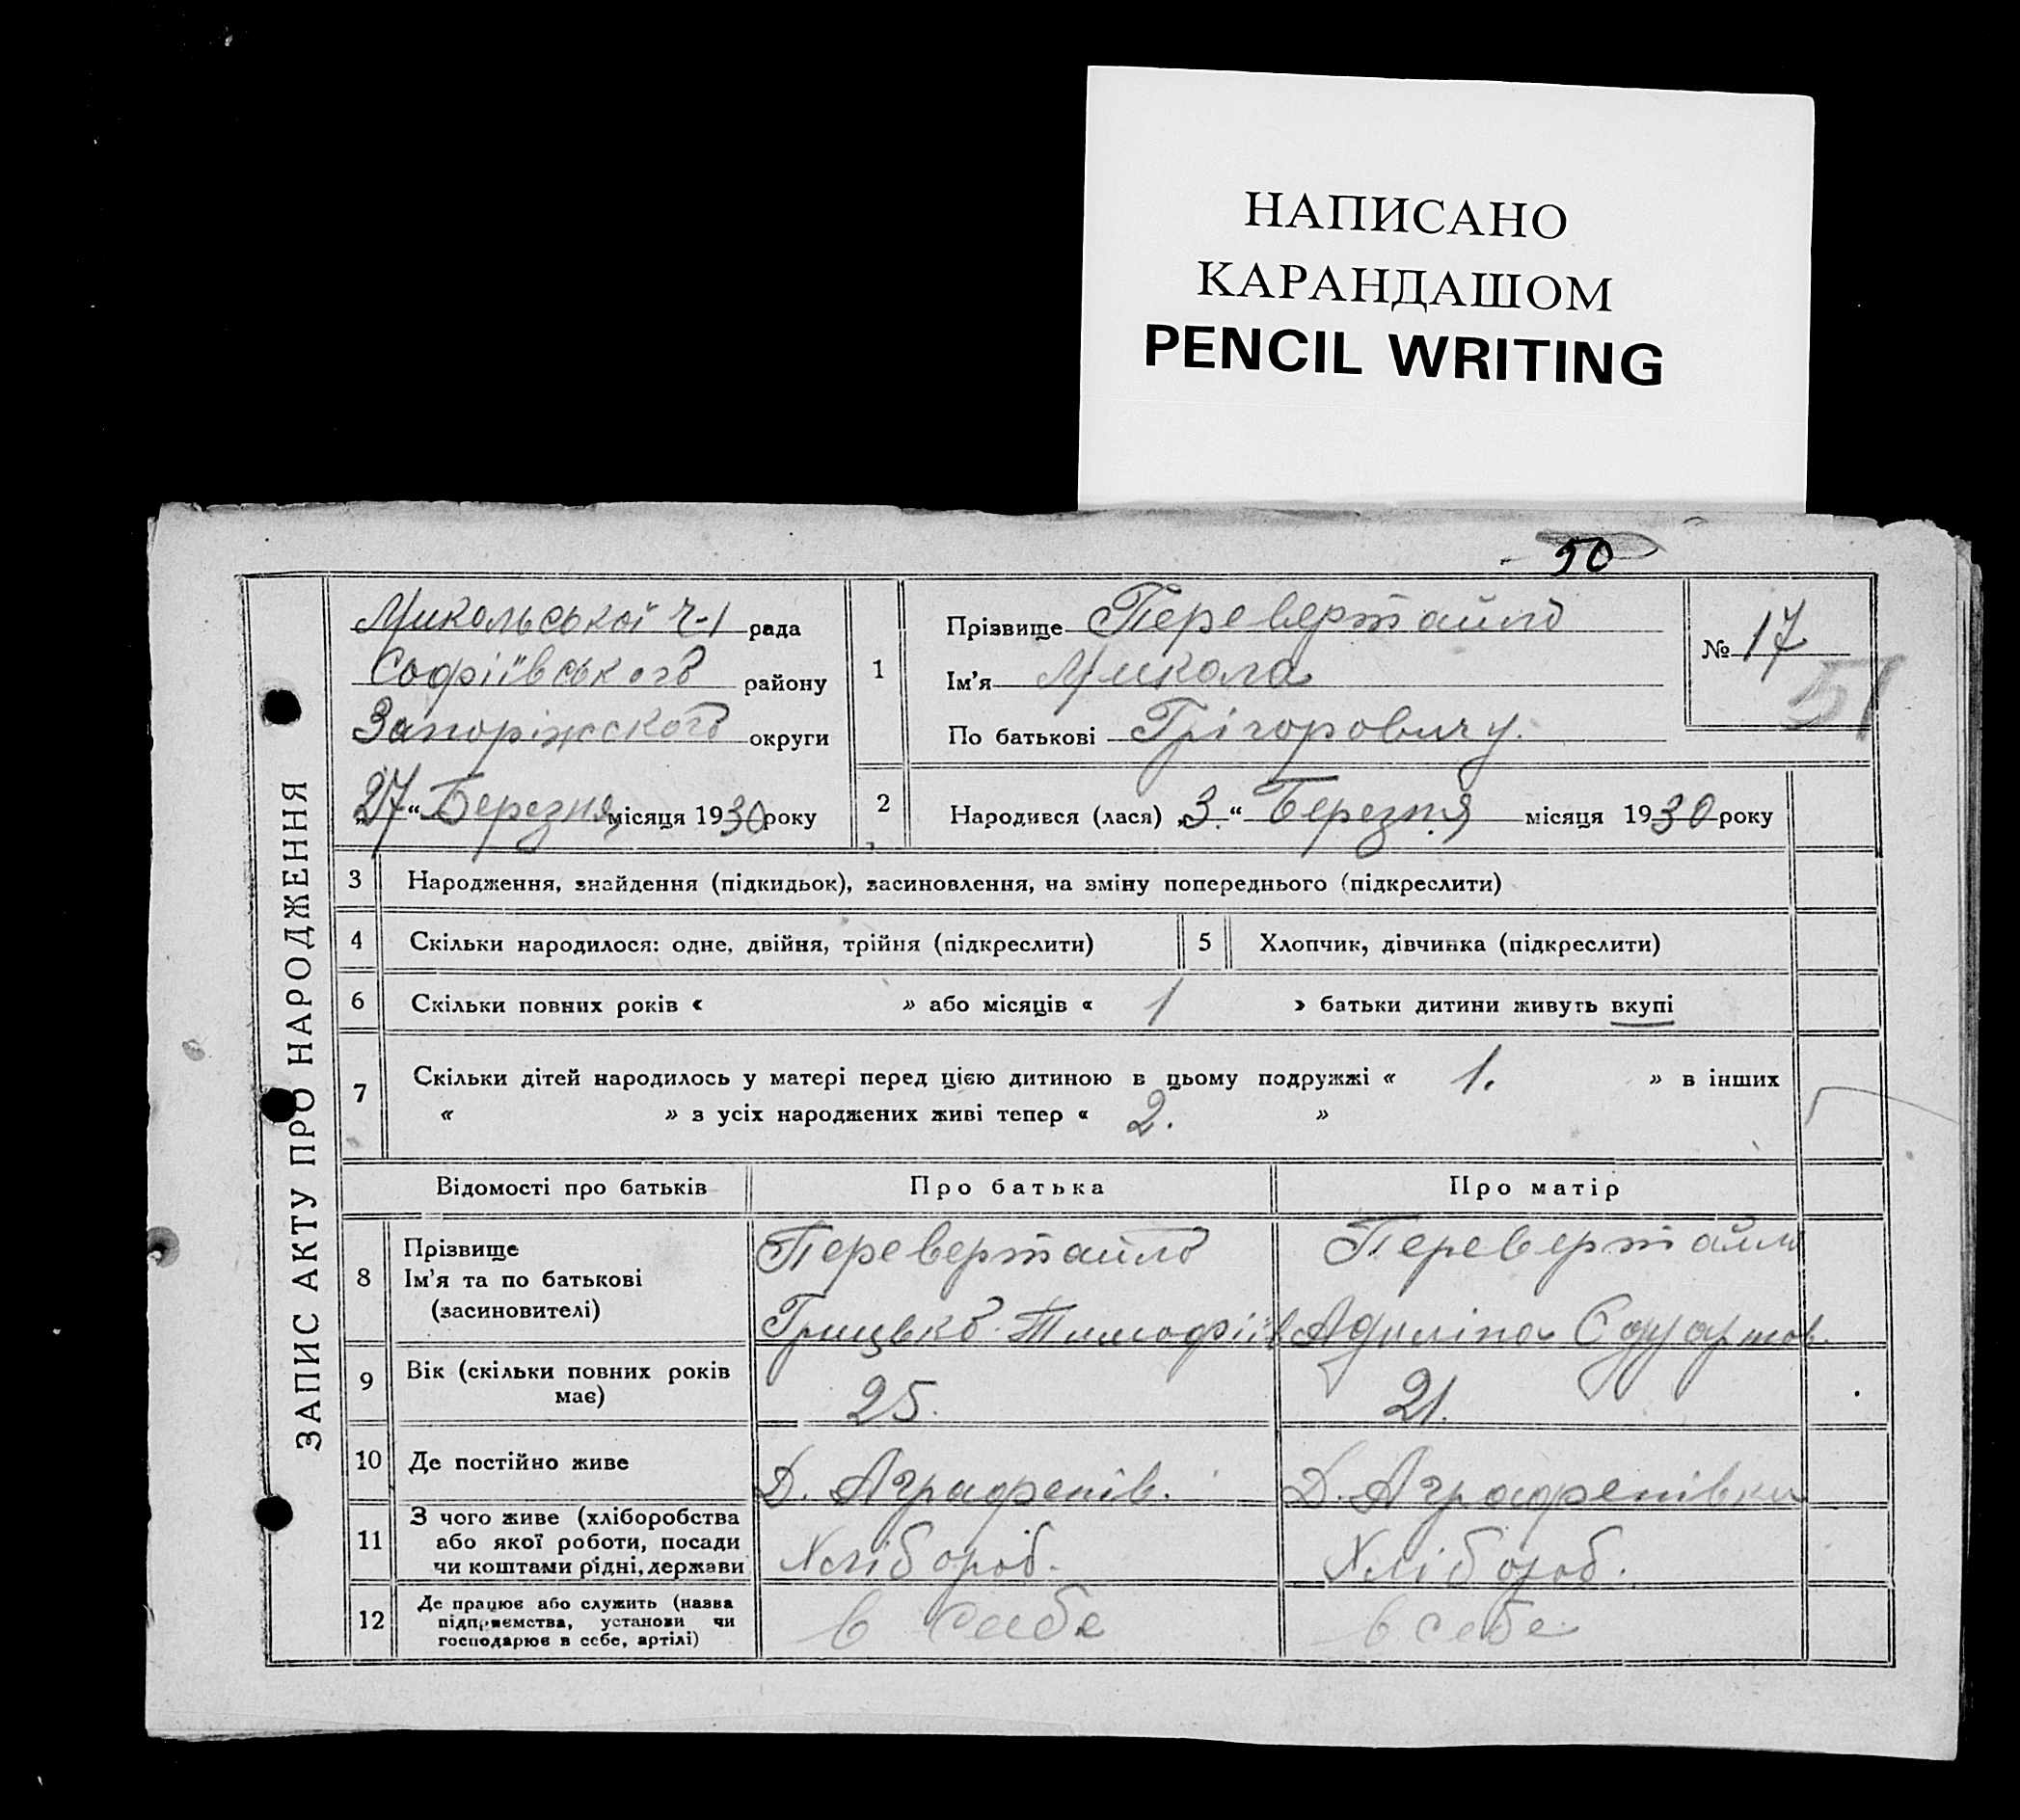 НАПИСАНО
КАРАНДАШОМ
PENCIL WRITING
50
ЗАПИС АКТУ ПРО НАРОДЖЕННЯ
Микольської Ч-1 рада
Софіївського району
Запоріжского округи
„27“ Березня місяця 1930 року
1
Прізвище Перевертайло
Ім’я Микола
По батькові Грігоровичу.
№ 17
51
2 Народився (лася) „3.“ Березня місяця 1930 року
3 Народження, знайдення (підкидьок), засиновлення, на зміну попереднього (підкреслити)
4 Скільки народилося: одне, двійня, трійня (підкреслити) 5 Хлопчик, дівчинка (підкреслити)
6 Скільки повних років « » або місяців « 1 » батьки дитини живуть вкупі
7 Скільки дітей народилось у матері перед цією дитиною в цьому подружжі « 1. » в інших
« » з усіх народжених живі тепер « 2. »
Відомості про батьків Про батька Про матір
8 Прізвище
Ім’я та по батькові
(засиновителі)
Перевертайло
Грицько Тимофіїв
Перевертайло
Адиліна
9 Вік (скільки повних років
має)
25. 21.
10 Де постійно живе Д. Аграфенів. Д. Аграфенівки
11 З чого живе (хліборобства
або якої роботи, посади
чи коштами рідні, держави
Хлібороб. Хлібороб.
12 Де працює або служить (назва
підприємства, установи чи
господарює в себе, артілі)
в себе в себе